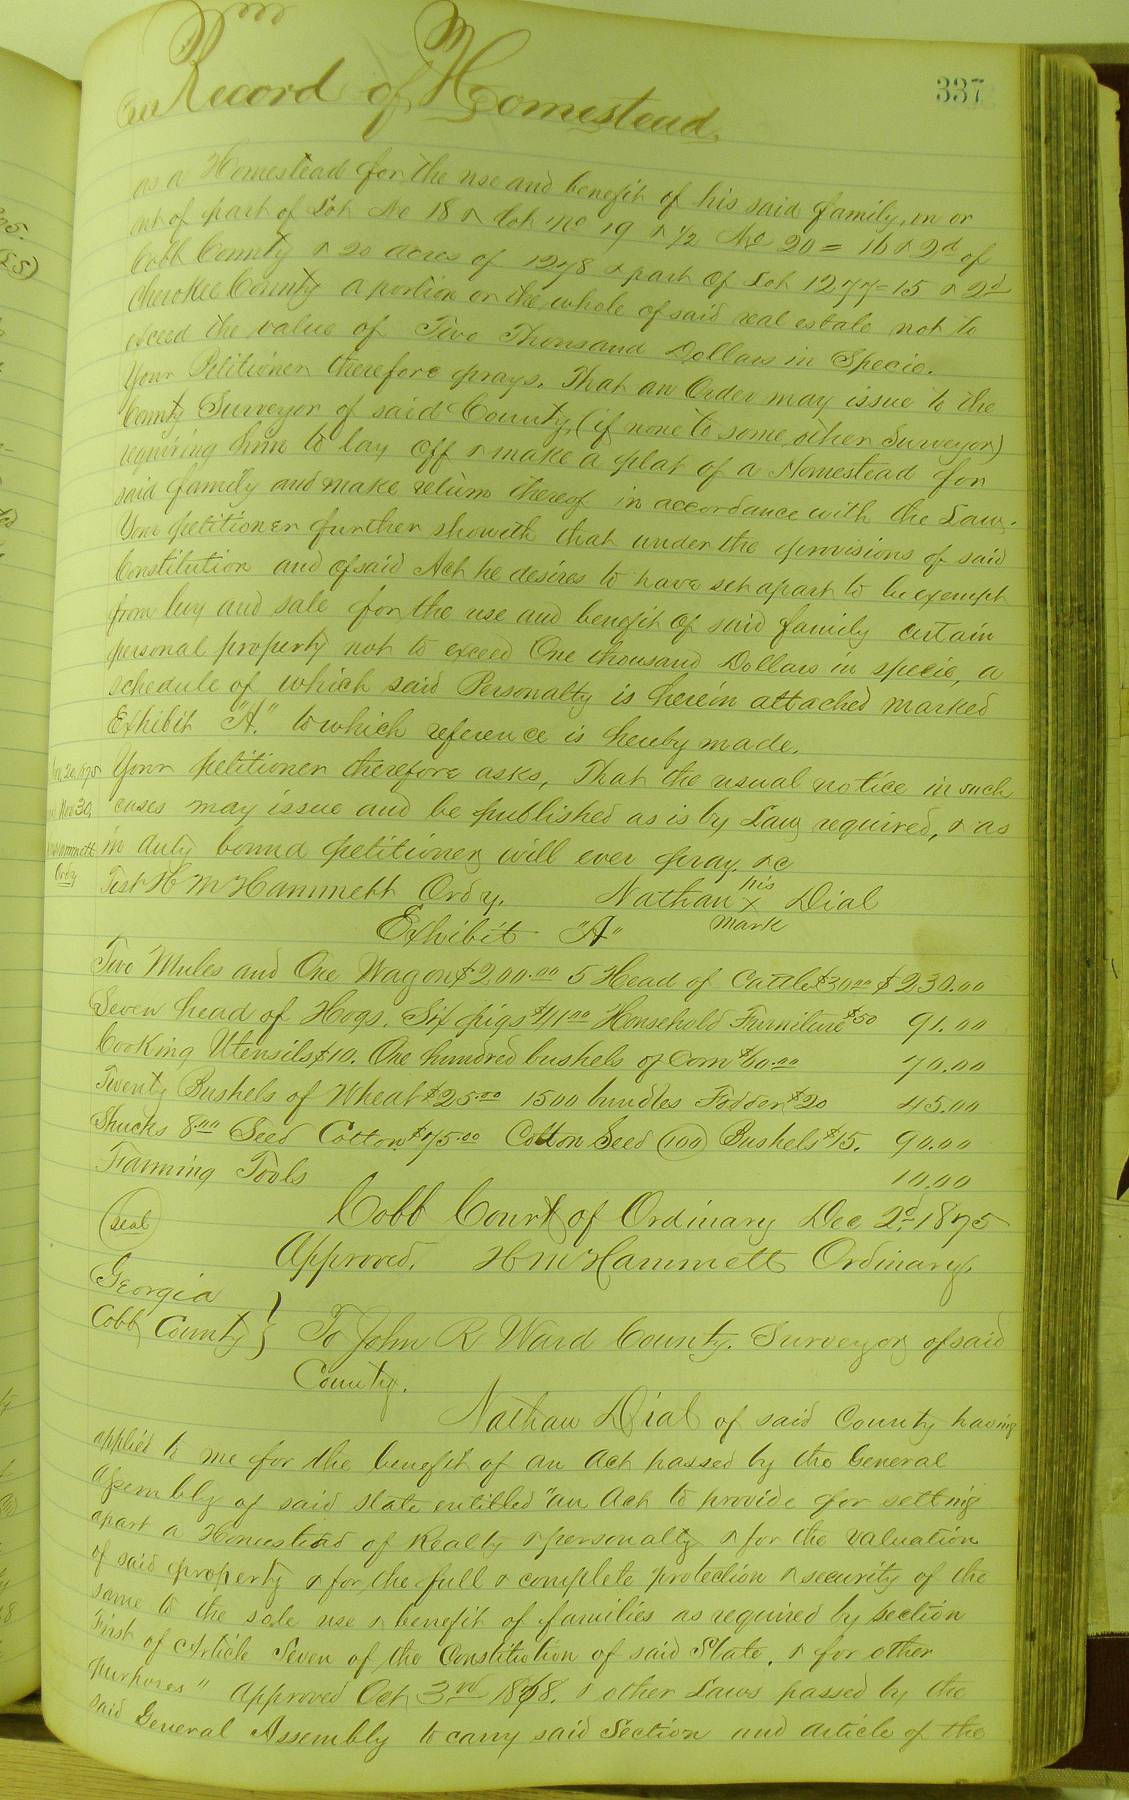 337
Record of Homestead
as a Homestead for the use and benefit of his said family, on or
out of part of Lot No 18 & Lot no 19 & 1/2 No 20 = 16 & 2d of
Cobb County & 20 acres of 1278 & part of Lot 1277=15 & 2d
Cherokee County a portion or the whole of said real estate not to
exceed the value of Two Thousand Dollars in Specie.
Your Petitioner therefore prays. That an Order may issue to the
County Surveyor of said County, (if none to some other Surveyor)
requiring him to lay off & make a plat of a Homestead for
said family and make return thereof in accordance with the Law.
Your petitioner further showeth that under the provisions of said
Constitution and of said Act he desires to have set apart to be exempt
from levy and sale for the use and benefit of said family certain
personal property not to exceed One thousand Dollars in specie, a
schedule of which said Personalty is herein attached marked
Exhibit "A." to which reference is hereby made.
Your petitioner therefore asks, That the usual notice in such
cases may issue and be published as is by Law required, & as
in duty bound petitioner will ever pray. &c
20, 1875
Nov 30,
Ordy
Test H M Hammett Ordy. Nathan his x mark Dial
Exhibit "A"
Two Mules and One Wagon $200.00 5 Head of Cattle $30.00 $230.00
Seven head of Hogs. Six pigs $41.00 Household Furniture $50 91.00
Cooking Utensils $10. One hundred bushels of Corn $60.00 70.00
Twenty Bushels of Wheat $25.00 1500 bundles Fodder $20 45.00
Shucks 8.00 Seed Cotton $75.00 Cotton Seed (100) Bushels $15. 90.00
Farming Tools 10.00
Cobb Court of Ordinary Dec, 2d 1875
(seal)
Approved. H M Hammett Ordinary.
Georgia
Cobb County } To John R Ward County. Surveyor of said
County.
Nathan Dial of said County having
applied to me for the benefit of an Act passed by the General
Assembly of said State entitled "an Act to provide for setting
apart a Homestead of Realty & personalty & for the valuation
of said property & for the full & complete protection & security of the
same to the sole use & benefit of families as required by section
First of Article Seven of the Constitution of said State, & for other
purposes" Approved Oct 3rd 1868. & other Laws passed by the
said General Assembly to carry said Section and Article of the